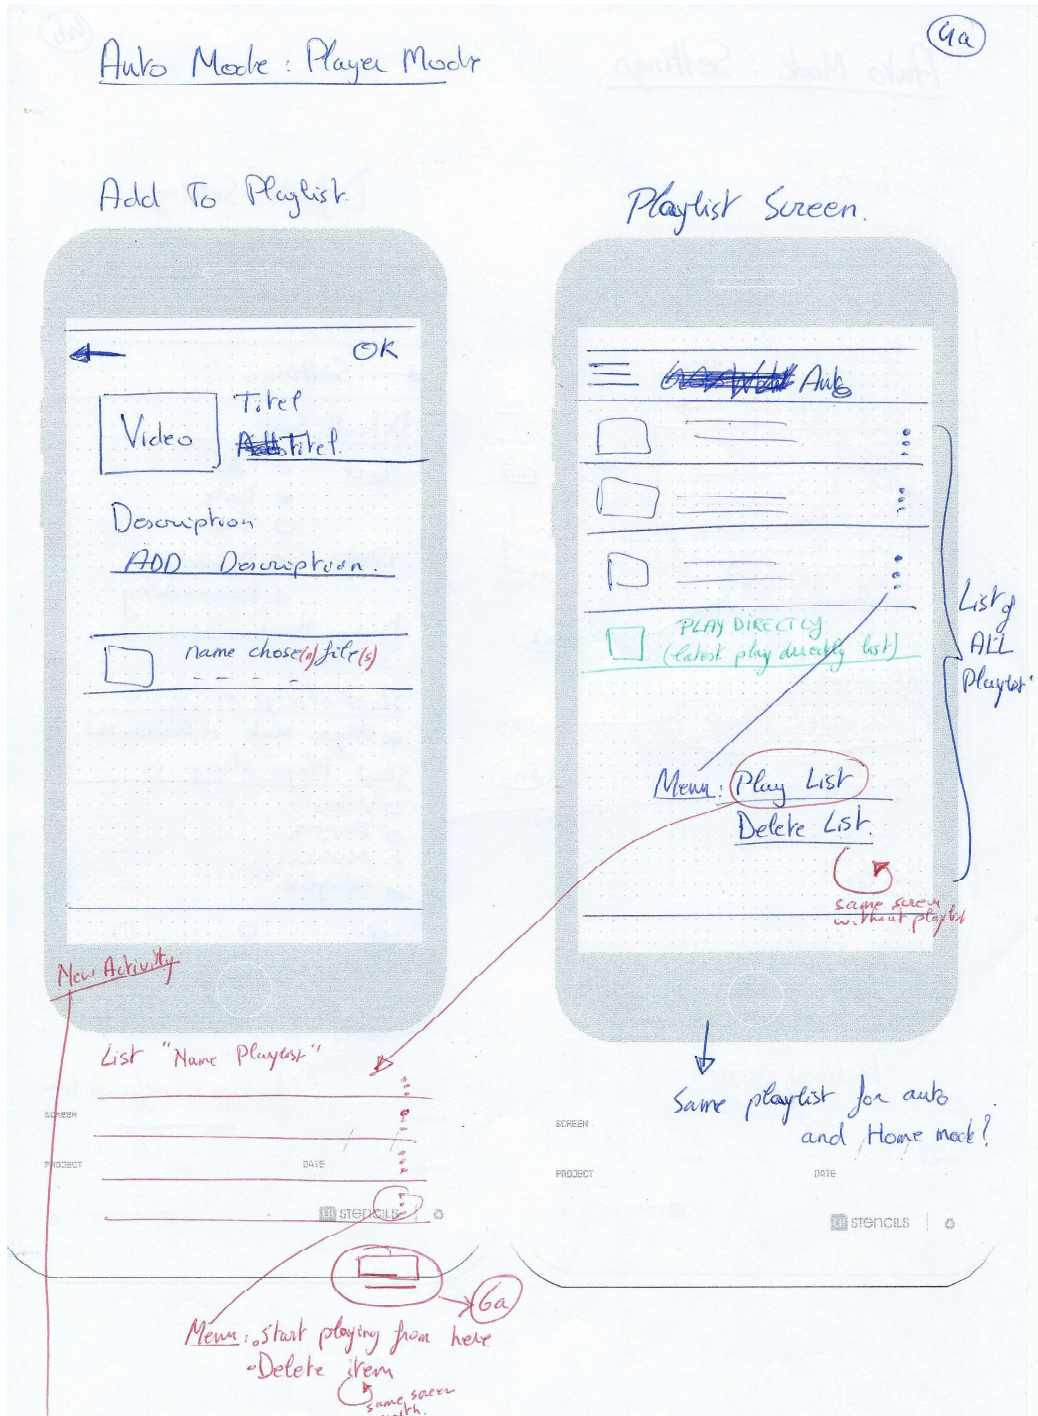 4a
Auto Mode : Player Mode
Add To Playlist
OK
Video
Titel
Titel.
Description
ADD Description.
name chose(n) file(s)
New Activity
List "Name Playlist"
SCREEN
PROJECT
DATE
UI STENCILS
6a
Menu: • Start playing from here
• Delete item
same screen
with.
Playlist Screen.
Auto
PLAY DIRECTLY
(latest play directly list)
List of
ALL
Playlist
Menu: Play List
Delete List.
same screen
without playlist
Same playlist for auto
and Home mode?
SCREEN
PROJECT
DATE
UI STENCILS